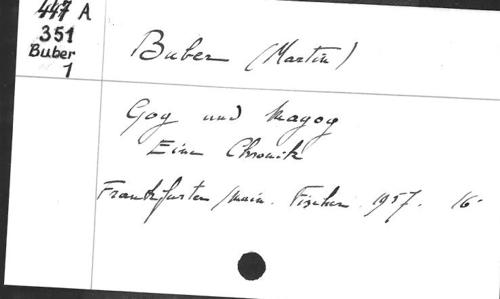 447 A
351
Buber
1
Buber (Martin)
Gog und Magog
Eine Chronik
Frankfurten/Main. Fischer. 1957. 16-